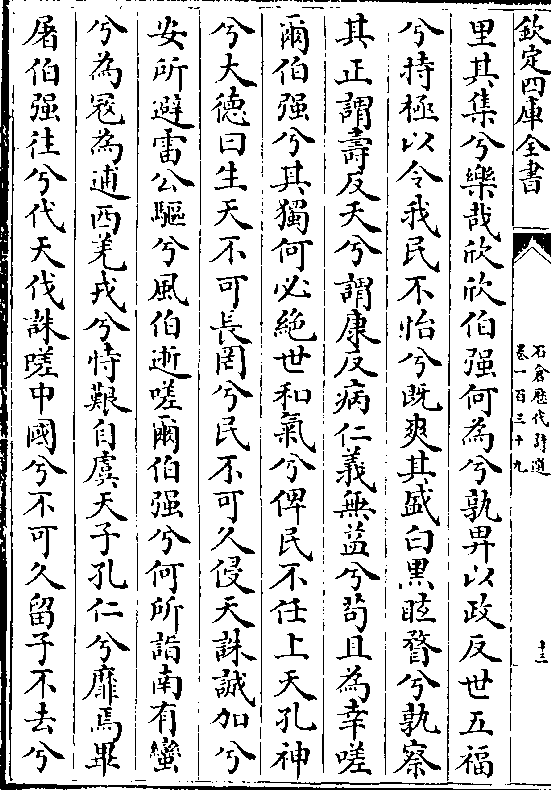 欽定四庫全書
石倉歷代詩選
卷一百三十九
十二
里其集兮樂哉欣欣伯强何為兮孰畀以政反世五福
兮持極以令我民不怡兮既爽其盛白黒眩瞀兮孰察
其正謂壽反夭兮謂康反病仁義無益兮茍且為幸嗟
爾伯强兮其獨何必絶世和氣兮俾民不任上天孔神
兮大德曰生天不可長罔兮民不可久侵天誅誠加兮
安所避雷公驅兮風伯逝嗟爾伯强兮何所詣南有蠻
兮為冦為逋西羌戎兮恃艱自虞天子孔仁兮靡焉畢
屠伯强往兮代天伐誅嗟中國兮不可久留子不去兮